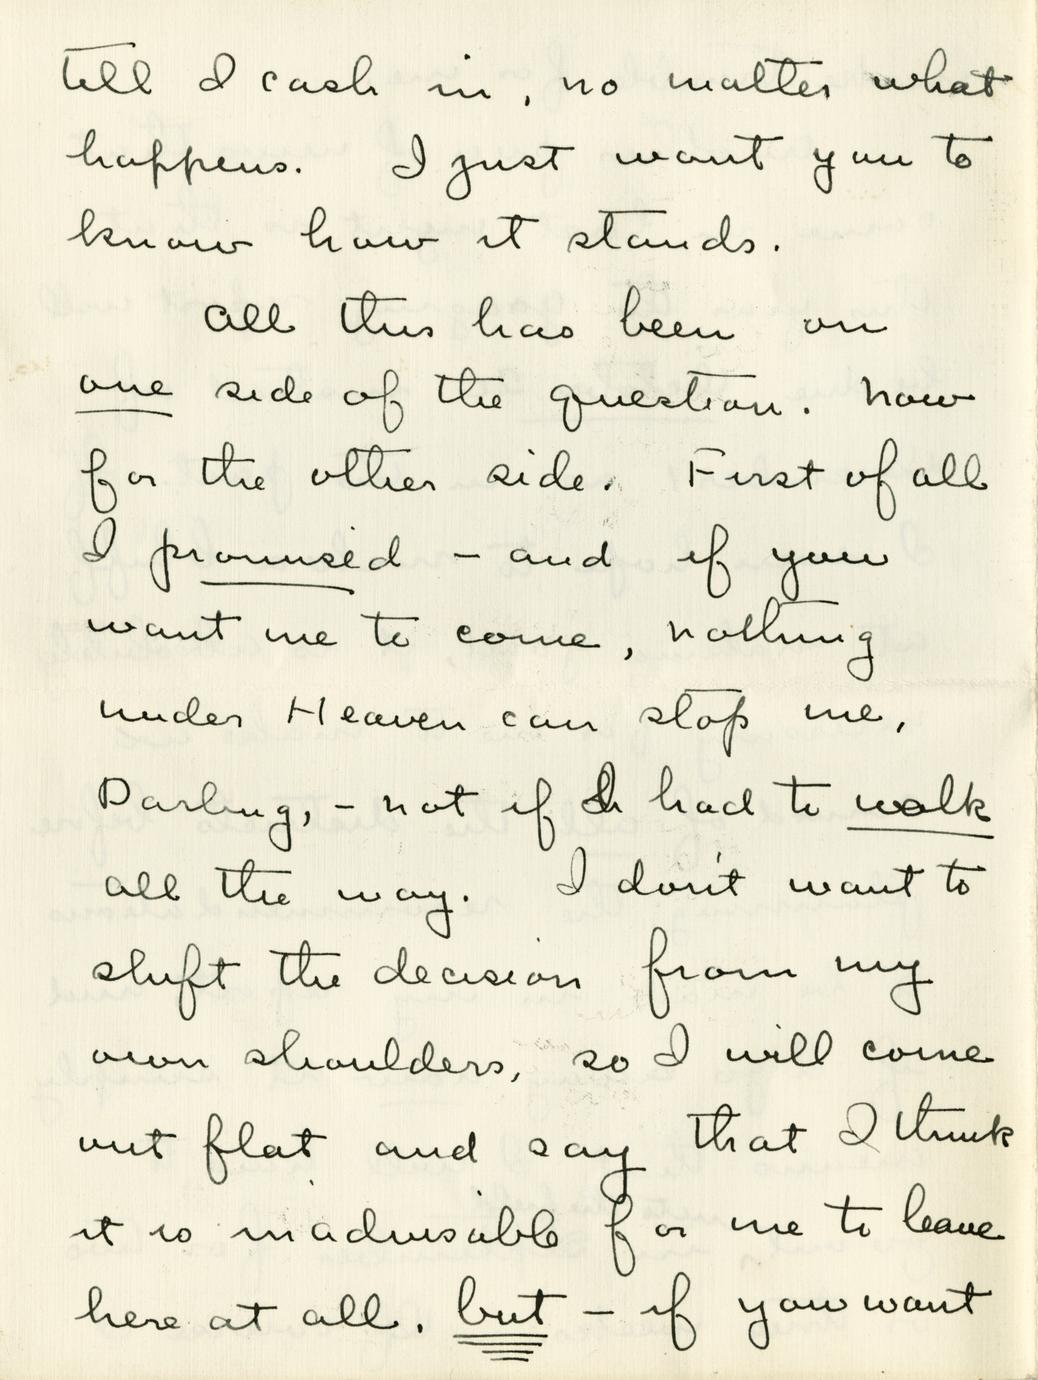 till I cash in, no matter what
happens. I just want you to
know how it stands.
All this has been on
one side of the question. Now
for the other side. First of all
I promised - and if you
want me to come, nothing
under Heaven can stop me,
Darling, - not if I had to walk
all the way. I don't want to
shift the decision from my
own shoulders, so I will come
out flat and say that I think
it is inadvisable for me to leave
here at all. but - if you want